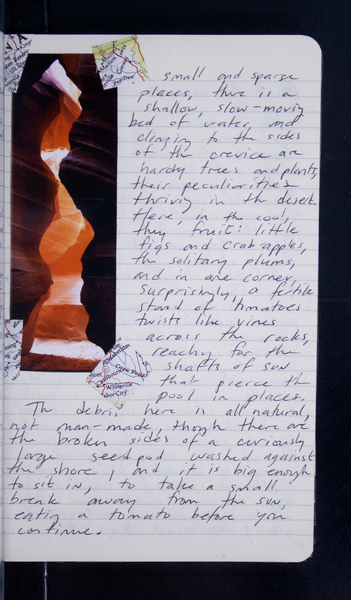 small and sparse
places, there is a
shallow, slow-moving
bed of water, and
clinging to the sides
of the crevice are
hardy trees and plants,
their peculiarities
thriving in the desert.
Here, in the cool,
they fruit: little
figs and crab-apples,
the solitary plums,
and in one corner,
surprisingly, a fertile
stand of tomatoes
twists like vines
across the rocks,
reaching for the
shafts of sun
that pierce the
pool in places.
The debris here is all natural,
not man-made, though there are
the broken sides of a curiously
large seedpod washed against
the shore, and it is big enough
to sit in, to take a small
break away from the sun,
eating a tomato before you
continue.